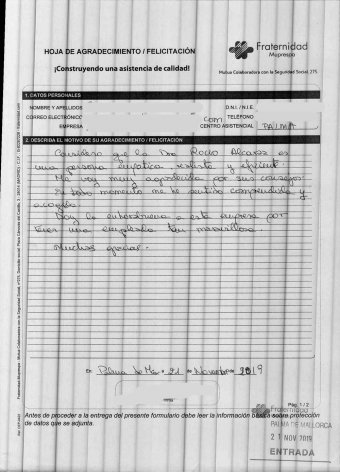 HOJA DE AGRADECIMIENTO / FELICITACIÓN
¡Construyendo una asistencia de calidad!
Fraternidad
Muprespa
Mutua Colaboradora con la Seguridad Social, 275
1. DATOS PERSONALES
NOMBRE Y APELLIDOS
D.N.I. / N.I.E.
CORREO ELECTRÓNICO
com
TELÉFONO
EMPRESA
CENTRO ASISTENCIAL PALMA
2. DESCRIBA EL MOTIVO DE SU AGRADECIMIENTO / FELICITACIÓN
Considero que la Dra Rocío Alcaraz es
una persona empática realista y eficiente.
Me voy muy agradecida por sus consejos.
En todo momento me he sentido comprendida y
acogida.
Doy la enhorabuena a esta empresa por
tener una empleada tan maravillosa.
Muchas gracias.
En Palma de M a 21 de Noviembre 2019
Firma
Pág. 1 / 2
Antes de proceder a la entrega del presente formulario debe leer la información básica sobre protección
de datos que se adjunta.
Fraternidad
PALMA DE MALLORCA
21 NOV 2019
ENTRADA